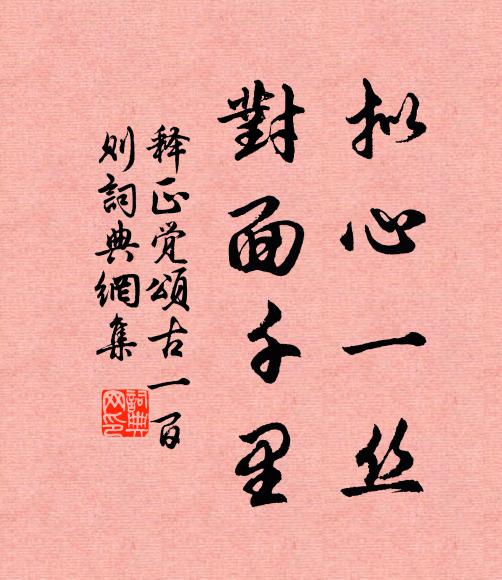 拟心一丝
對面千里
释正觉頌古一百
则詞典網集
詞典
网印